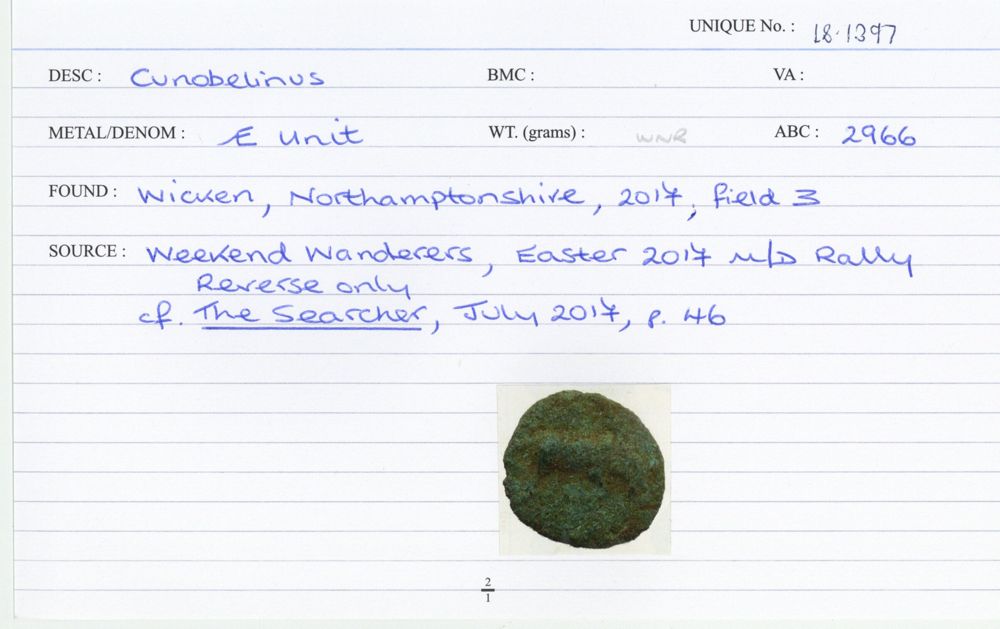 UNIQUE No. : 18.1397
DESC : Cunobelinus BMC : VA :
METAL/DENOM : Æ Unit WT. (grams) : WNR ABC : 2966
FOUND : Wicken, Northamptonshire, 2017, field 3
SOURCE : Weekend Wanderers, Easter 2017 M/D Rally
Reverse only
cf. The Searcher, July 2017, p. 46
2
1